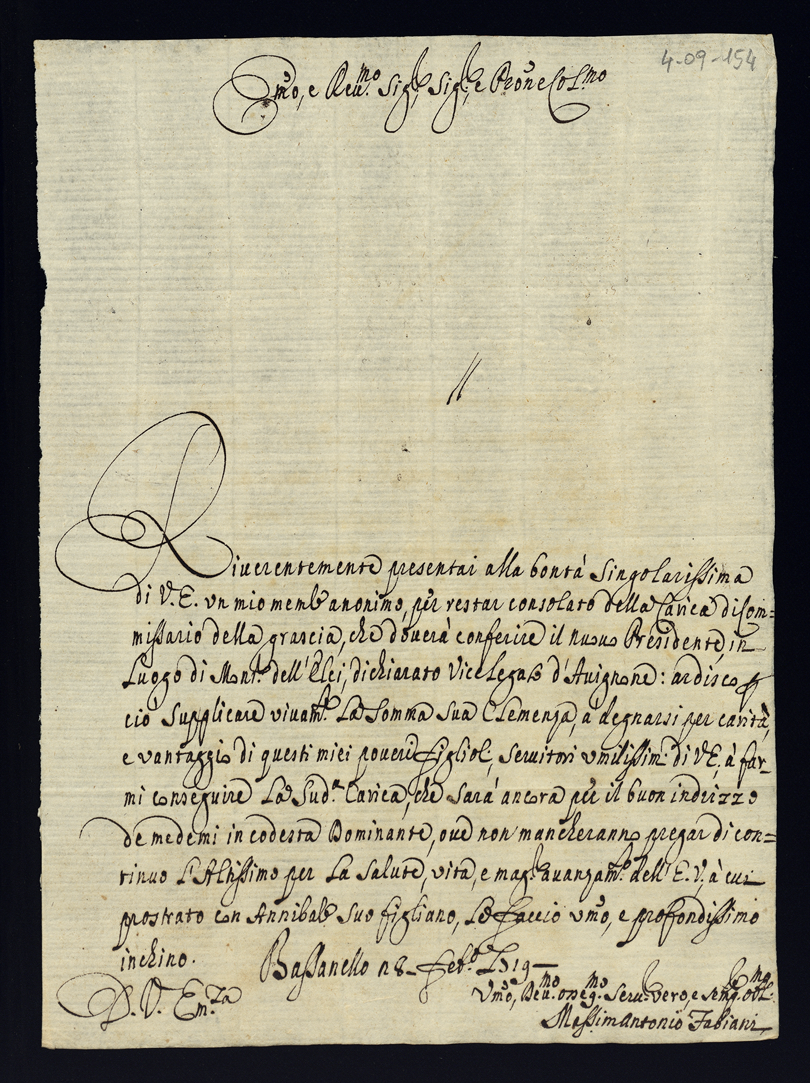 4-09-154
Emo, e Reu.mo Sig.re Sig.re e Prone Col.mo
Riuerentemente presentai alla bontà singolarissima
di V.E. vn mio mem.le anonimo, per restar consolato della Carica di Com=
missario della grascia, che douerà conferire il nuouo Presidente, in
Luogo di Mons.r dell'Elci, dichiarato Vice Legato d'Auignone: ardisco
ciò supplicare viuam.te La somma sua Clemenza, a degnarsi per carità,
e vantaggio di questi miei poueri figliol, seruitori vmilissim. di V.E, à far-
mi conseguire La sud.a Carica, che sarà ancora per il buon indrizzo
de medemi in codesta Dominante, oue non mancheranno pregar di con=
tinuo L'Altissimo per La salute, vita, e mag.r auanzam.to dell'E.V. à cui
prostrato con Annibale suo figliano, Le faccio vmo, e profondissimo
inchino. Bassanello n 8 Feb.o 1719
D. V. Em.za
Vmo, Deu.mo osseq.mo Seru. vero, e semp. obl.mo
Massimantonio Fabiani